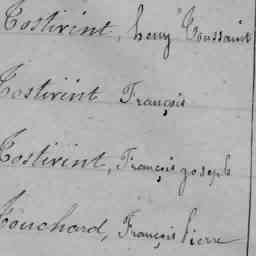 Costirint, henry Toussaint
Costirint François
Costirint, François joseph
Couchard, François Pierre